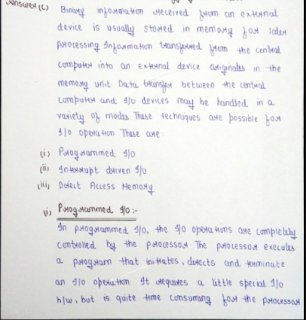 Answer (c) Binary information received from an external
device is usually stored in memory for later
processing Information transferred from the central
computer into an external device originates in the
memory unit Data transfer between the central
computer and I/O devices may be handled in a
variety of modes These techniques are possible for
I/O operation These are:
(i) Programmed I/O
(ii) Interrupt driven I/O
(iii) Direct Access Memory
i) Programmed I/O :-
In programmed I/O, the I/O operations are completely
controlled by the processor The processor executes
a program that initiates, directs and terminate
an I/O operation It requires a little special I/O
h/w, but is quite time consuming for the processor